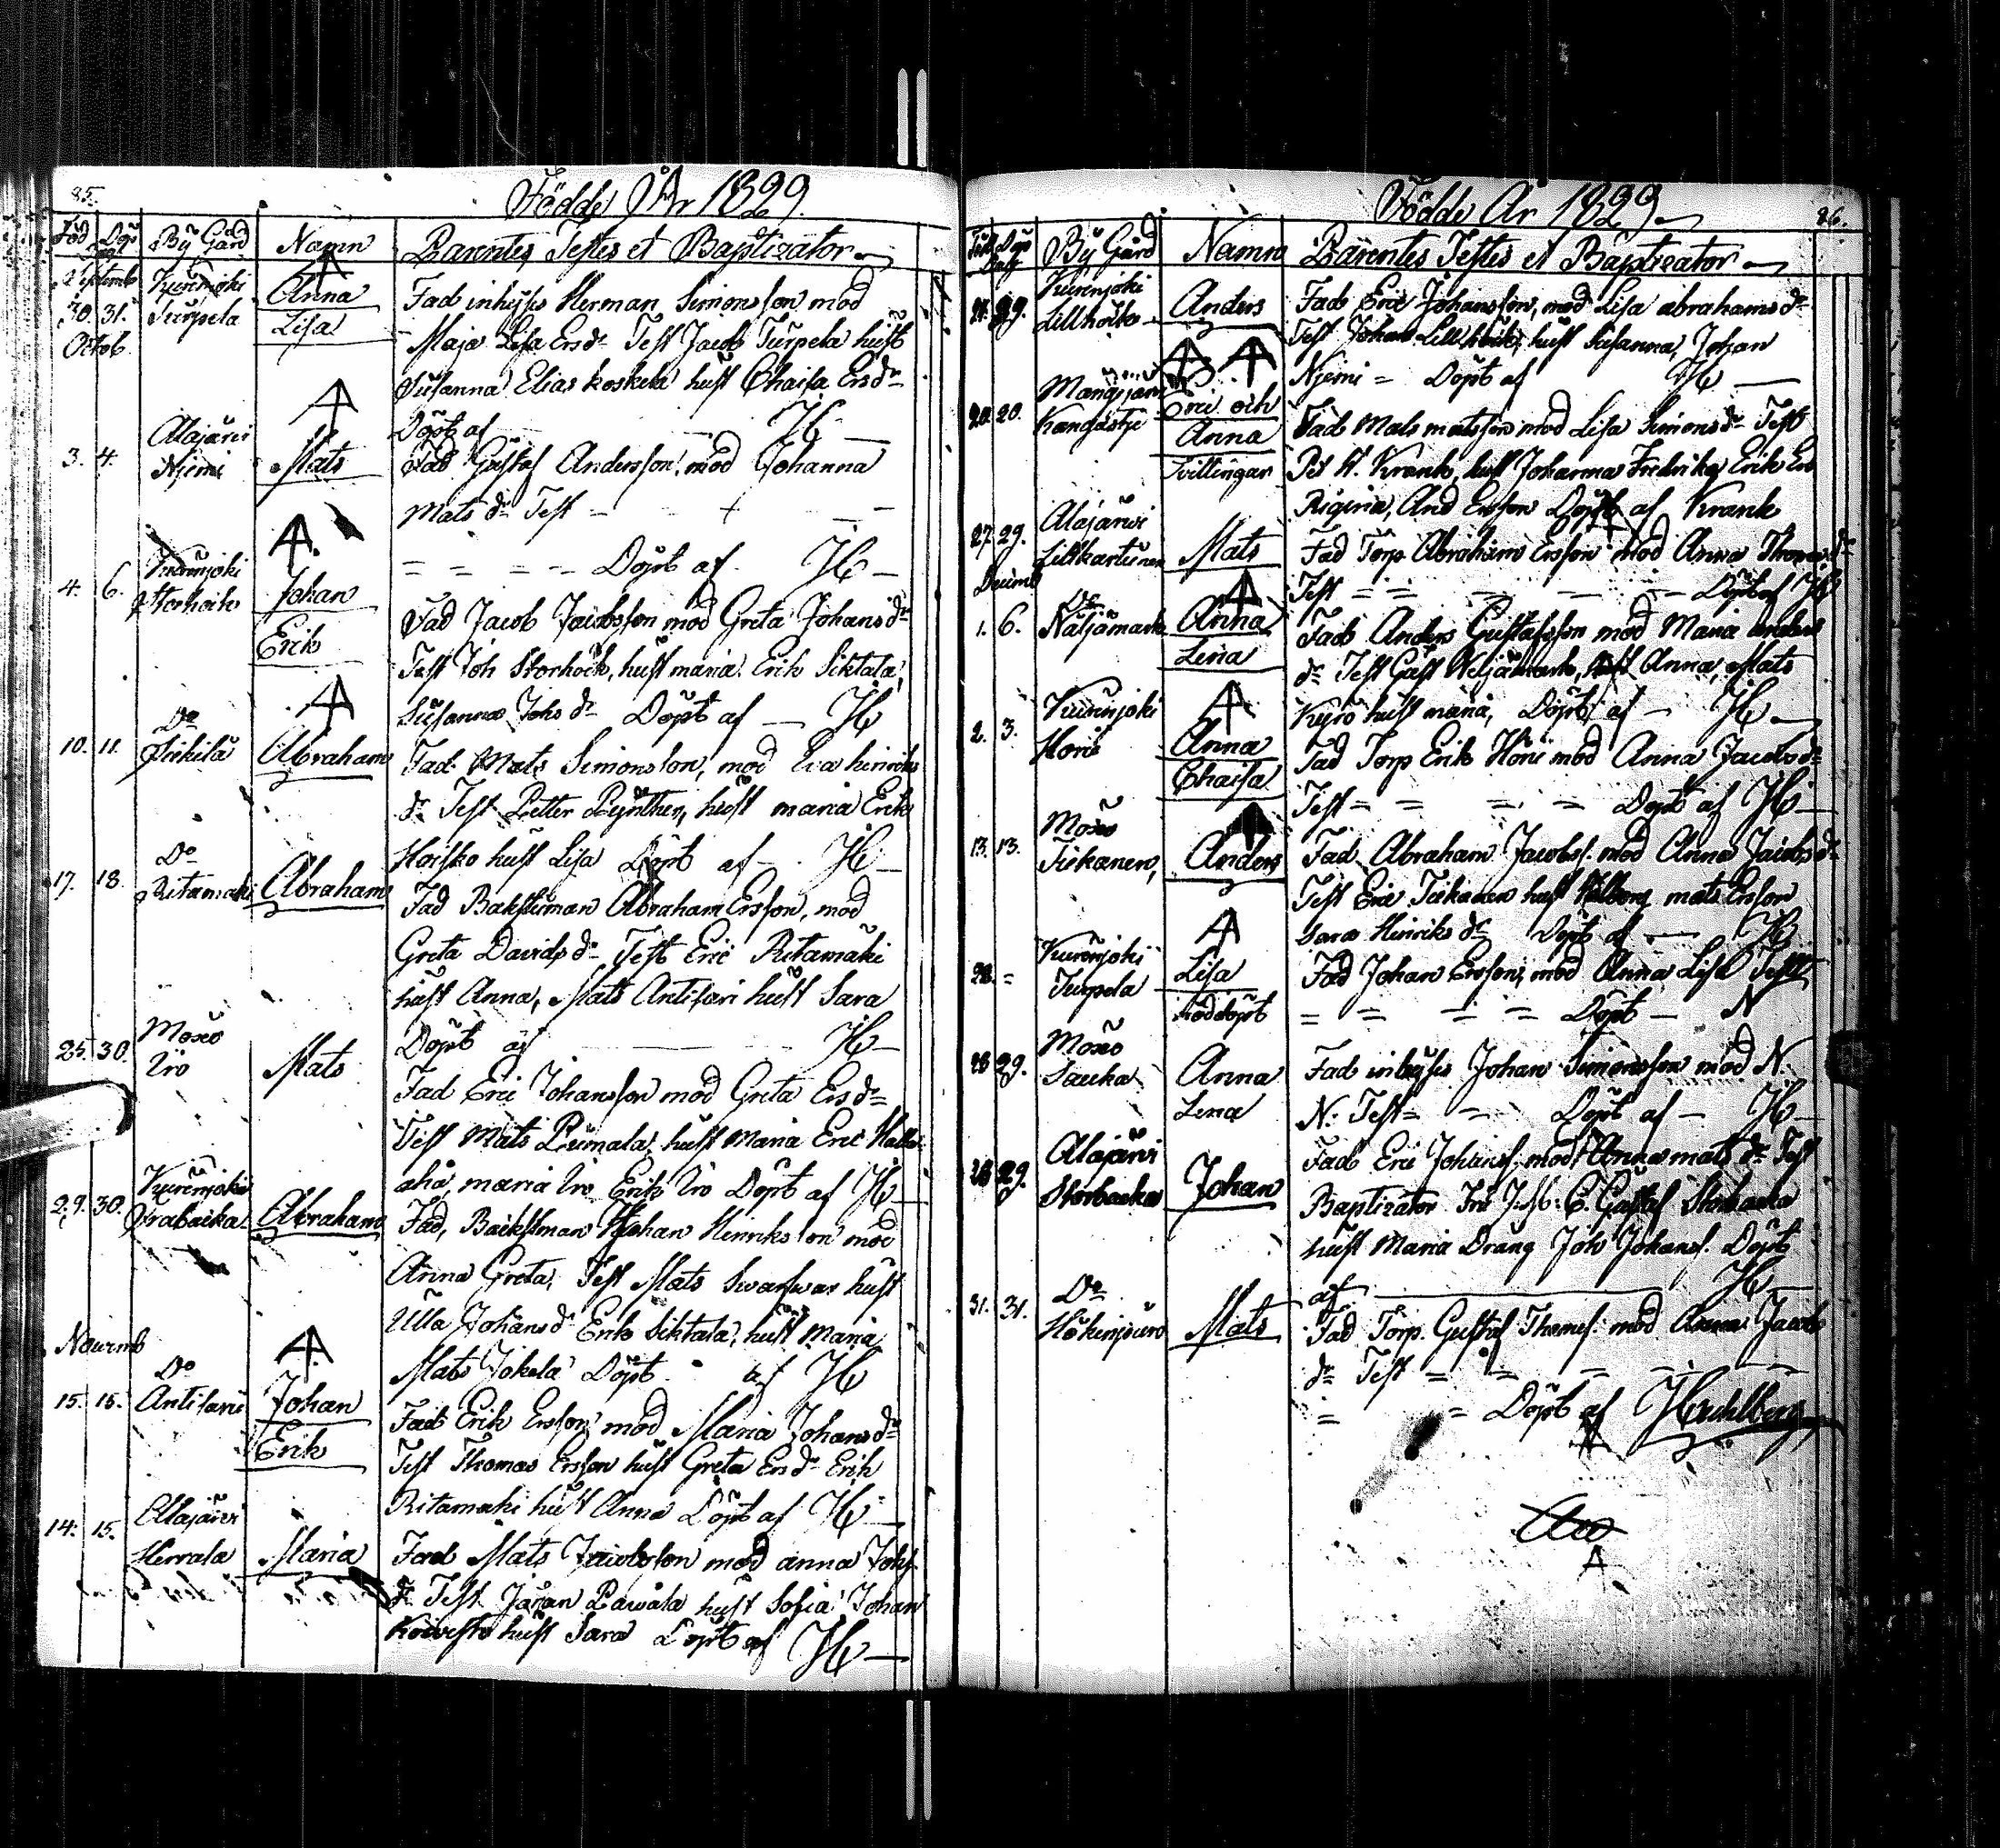 85.
Födde År 1829.
Föd Döp By Gård Namn Parentes, Testes et Baptizator
Septemb Kurinjoki Anna Fad inhyses Herman Simonsson mod
30. 31. Turpela Lisa Maja Lisa Ersdr Test Jacob Turpela hust
Octob. Susanna Elias koskela hust Chaisa Ersdr
Döpt af H
3. 4. Alajärvi Niemi Mats Fad Gustaf Andersson, mod Johanna
Mats dr Test
Döpt af H
4. 6. Kurinjoki Storhök Johan Fad Jacob Jacobsson mod Greta Johansdr
Erik Test Joh Storhöck, hust maria. Erik Siktala,
Susanna Johs dr Döpt af H
10. 11. Do Abraham Fad Mats Simonsson, mod Eva hinriks
dr Test Petter hust maria Erik
Hoisko hust Lisa Döpt af H
17. 18. Do Ritamäki Abraham Fad Abraham Ersson, mod
Greta Davidsdr Test Eric Ritamäki
hust Anna, Mats Antisari hust Sara
Döpt af H
25. 30. Moxo Iro Mats Fad Eric Johansson mod Greta Ersdr
Test Mats Pumala, hust Maria Eric
aho, maria Iro Erik Iro Döpt af H
29. 30. Kurinjoki Abraham Fad, Johan Hinriksson mod
Anna Greta, Test Mats hust
Ulla Johansdr Erik Siktala, hust Maria
Mats Jokela Döpt af H
Novemb
15. 15. Do Antisari Johan Fad Erik Ersson mod Maria Johansdr
Erik Test Thomas Ersson hust Greta Ersdr Erik
Ritamäki hust Anna Döpt af H
14. 15. Alajärvi Herrala Maria Fad Mats Jacobsson mod anna Johs
dr Test. Jöran Pawåla hust Sofia Johan
Koivisto hust Sara Döpt af H
Födde År 1829.
86.
Döp By Gård Namn Parentes Testes et Baptizator
29. Kurinjoki Lillhök Anders Fad Eric Johansson, mod Lisa abrahamsdr
Test Johan Lillhök, hust Susanna, Johan
Niemi Döpt af H
20. 20. Kangastie Eric och Fad Mats matsson mod Lisa Simonsdr Test
Anna
Tvillingar Pet H. Krank, hust Johanna Fredrika, Erik Ers
Rigina, And Ersson Döpt af Krank
27. 29. Alajärvi Lillkartunen Mats Fad Torp Abraham Ersson mod Anna Thomasdr
Decemb Test Döpt af H
1. 6. Do Anna Fad Anders Gustafsson mod Maria anders
Lena dr Test Gust hust Anna, Mats
Kyrö hust maria, Döpt af H
2. 3. Kurinjoki Höni Anna Fad Torp Erik Höni mod Anna Jacobsdr
Chaisa Test Döpt af H
13. 13. Moxo Tiskanen, Anders Fad Abraham Jacobs. mod Anna Jacobsdr
Test Eric Tiskanen hust Walborg mats Ersson
Sara Hinriksdr Döpt af H
28. Kurinjoki Turpela Lisa Fad Johan Ersson, mod Anna Lisa Test
Nöddöpt Döpt N
28 29. Moxo Sauka Anna Fad inhyses Johan Simonsson mod N.
Lena N. Test Döpt af H
28 29. Alajärvi Storbacka Johan Fad Eric Johanss. mod Anna mats dr Test
Baptizator Gustaf Storbacka
hust Maria Dräng Joh Johanss. Döpt
af H
31. 31. Do Mats Fad Torp. Gustaf Thomss. mod Anna Jacob
dr Test
Döpt af